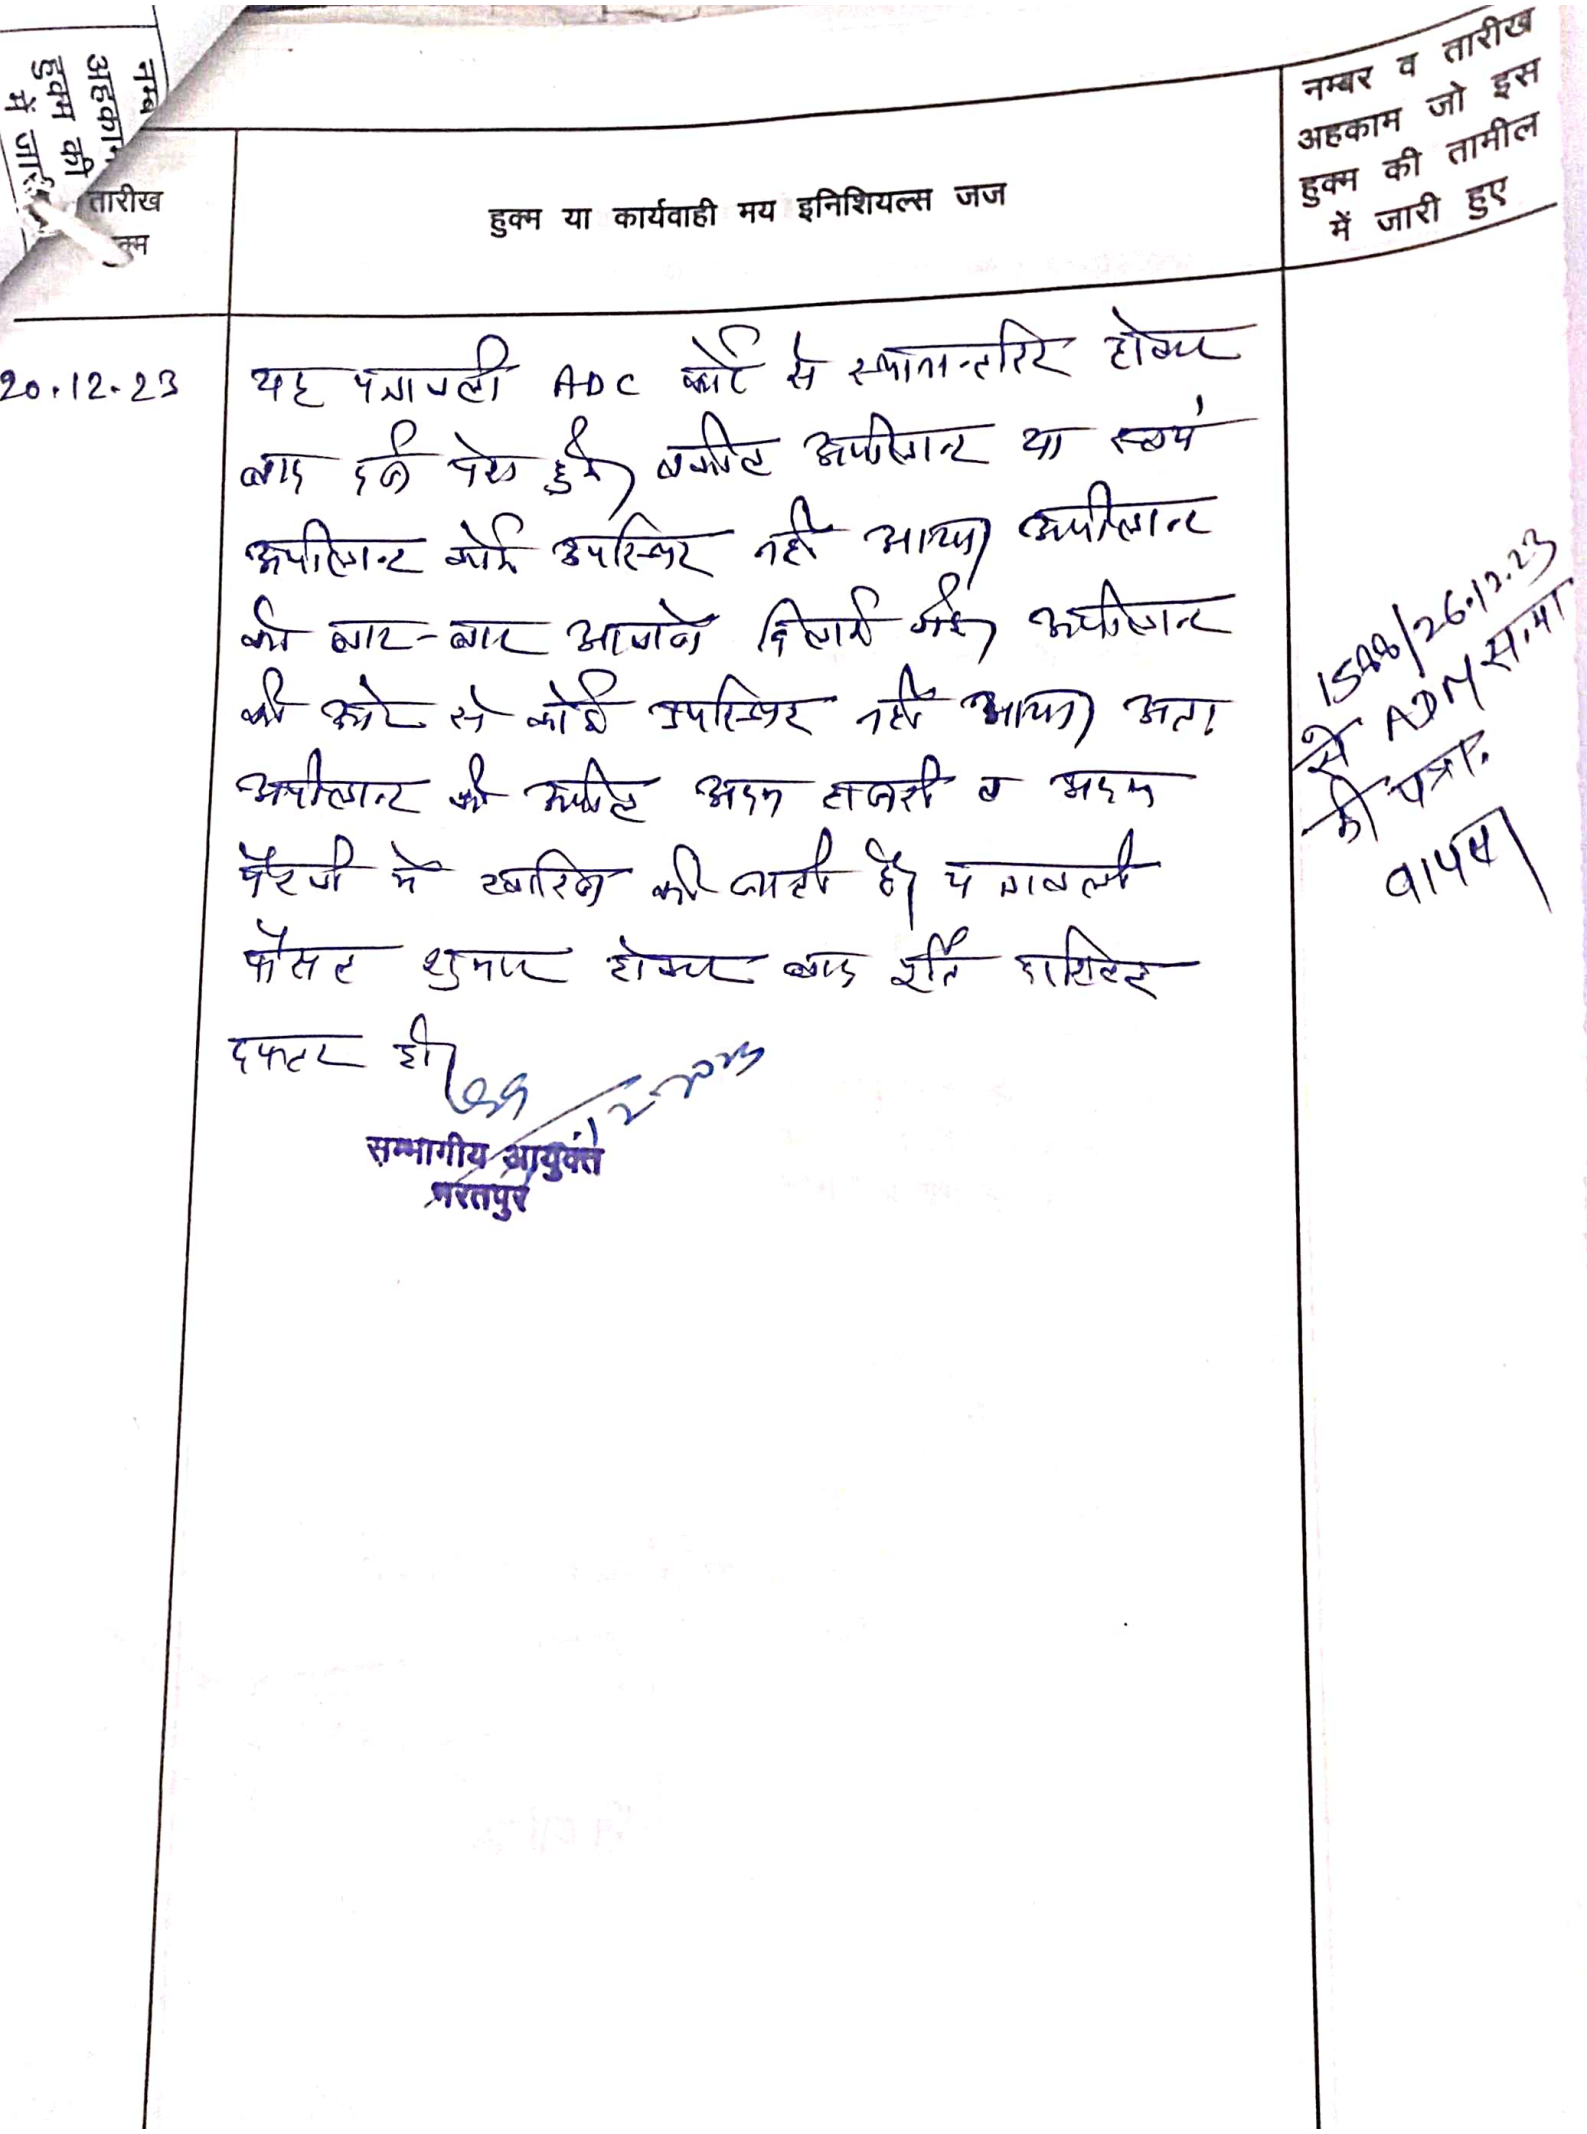 नम्ब
अहकाम
हुक्म की
में जारी
तारीख
हुक्म
हुक्म या कार्यवाही मय इनिशियल्स जज
नम्बर व तारीख
अहकाम जो इस
हुक्म की तामील
में जारी हुए
20.12.23
यह पत्रावली ADC कोर्ट से स्थानान्तरित होकर
बाद दर्ज पेश हुई। वकील अपीलान्ट या स्वयं
अपीलान्ट कोई उपस्थित नहीं आया। अपीलान्ट
को बार-बार आवाजें दिलाई गई। अपीलान्ट
की ओर से कोई उपस्थित नहीं आया। अतः
अपीलान्ट की अपील अदम हाजरी व अदम
पैरवी में खारिज की जाती है। पत्रावली
फैसल शुमार होकर बाद दाखिल
दफ्तर हो।
सम्भागीय आयुक्त
भरतपुर
1588/26.12.23
से ADM स.मा
की पत्रा.
वापस।